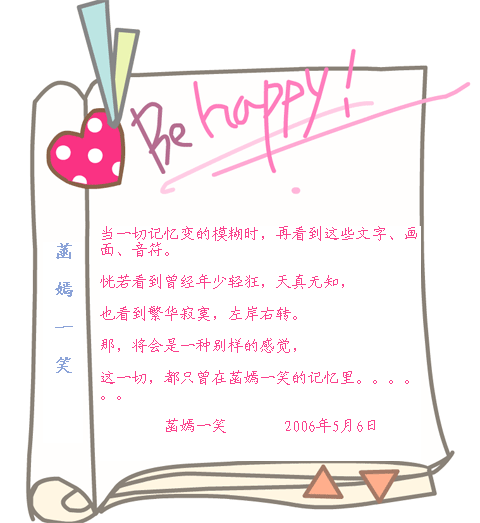 Be happy!
菡嫣一笑
当一切记忆变的模糊时，再看到这些文字、画
面、音符。
恍若看到曾经年少轻狂，天真无知，
也看到繁华寂寞，左岸右转。
那，将会是一种别样的感觉，
这一切，都只曾在菡嫣一笑的记忆里。。。。
。。
菡嫣一笑 2006年5月6日